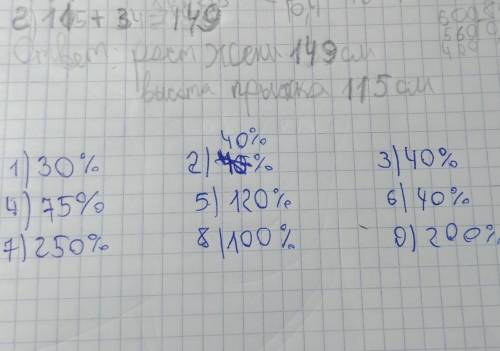 2) 115 + 34 = 149
Ответ: рост Жени 149 см
высота прыжка 115 см
40%
1) 30% 2) 3) 40%
4) 75% 5) 120% 6) 40%
7) 250% 8) 100% 9) 200%